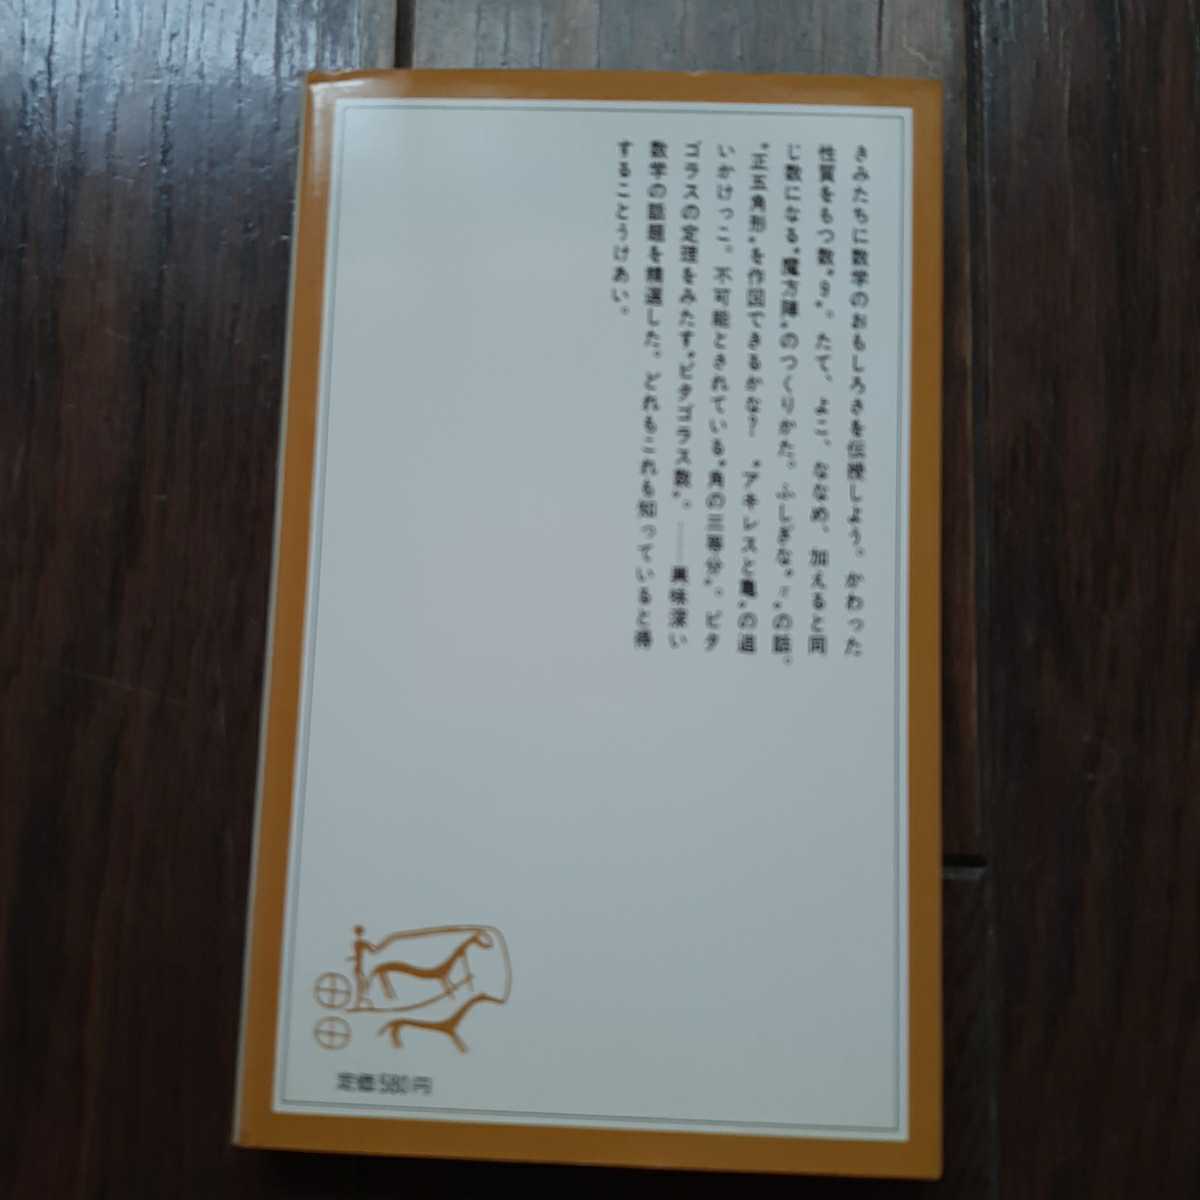 きみたちに数学のおもしろさを伝授しよう。かわった
性質をもつ数〝9〟。たて、よこ、ななめ、加えると同
じ数になる〝魔方陣〟のつくりかた。ふしぎな〝π〟の話。
〝正五角形〟を作図できるかな？　〝アキレスと亀〟の追
いかけっこ。不可能とされている〝角の三等分〟。ピタ
ゴラスの定理をみたす〝ピタゴラス数〟。――興味深い
数学の話題を精選した。どれもこれも知っていると得
することうけあい。
定価580円